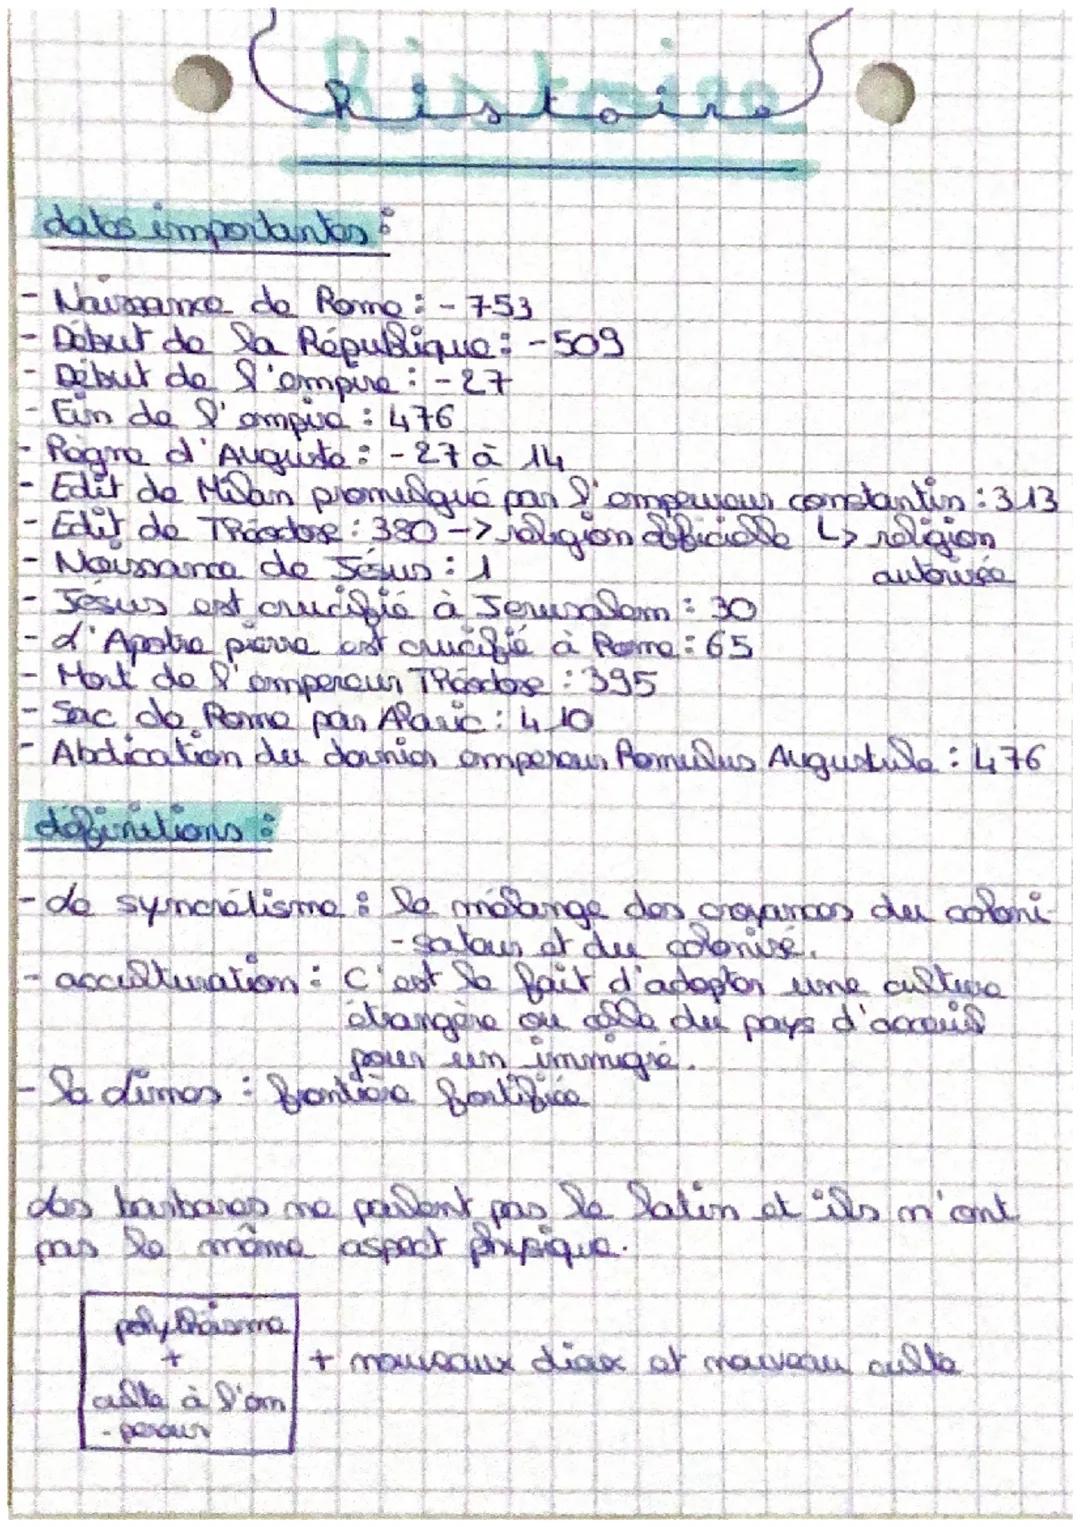 Histoire
dates importantes :
- Naissance de Rome : - 753
- Début de la République : - 509
- Début de l'empire : - 27
- Fin de l'empire : 476
- Règne d'Auguste : - 27 à 14
- Edit de Milan promulgué par l'empereur constantin : 313
- Edit de Théodose : 380 -> religion officielle ↳ religion
autorisée
- Naissance de Jésus : 1
- Jésus est crucifié à Jerusalem : 30
- L'Apotre pierre est crucifié à Rome : 65
- Mort de l'empereur Théodose : 395
- Sac de Rome par Alaric : 410
- Abdication du dernier empereur Romulus Augustule : 476
définitions :
- Le syncrétisme : le mélange des croyances du coloni-
-sateur et du colonisé.
- acculturation : C'est le fait d'adopter une culture
étrangère ou celle du pays d'accueil
pour un immigré.
- Le Limes : frontière fortifiée
Les barbares ne parlent pas le latin et ils n'ont
pas le même aspect physique.
polythéisme
+
culte à l'em
-pereur
+ nouveaux dieux et nouveau culte